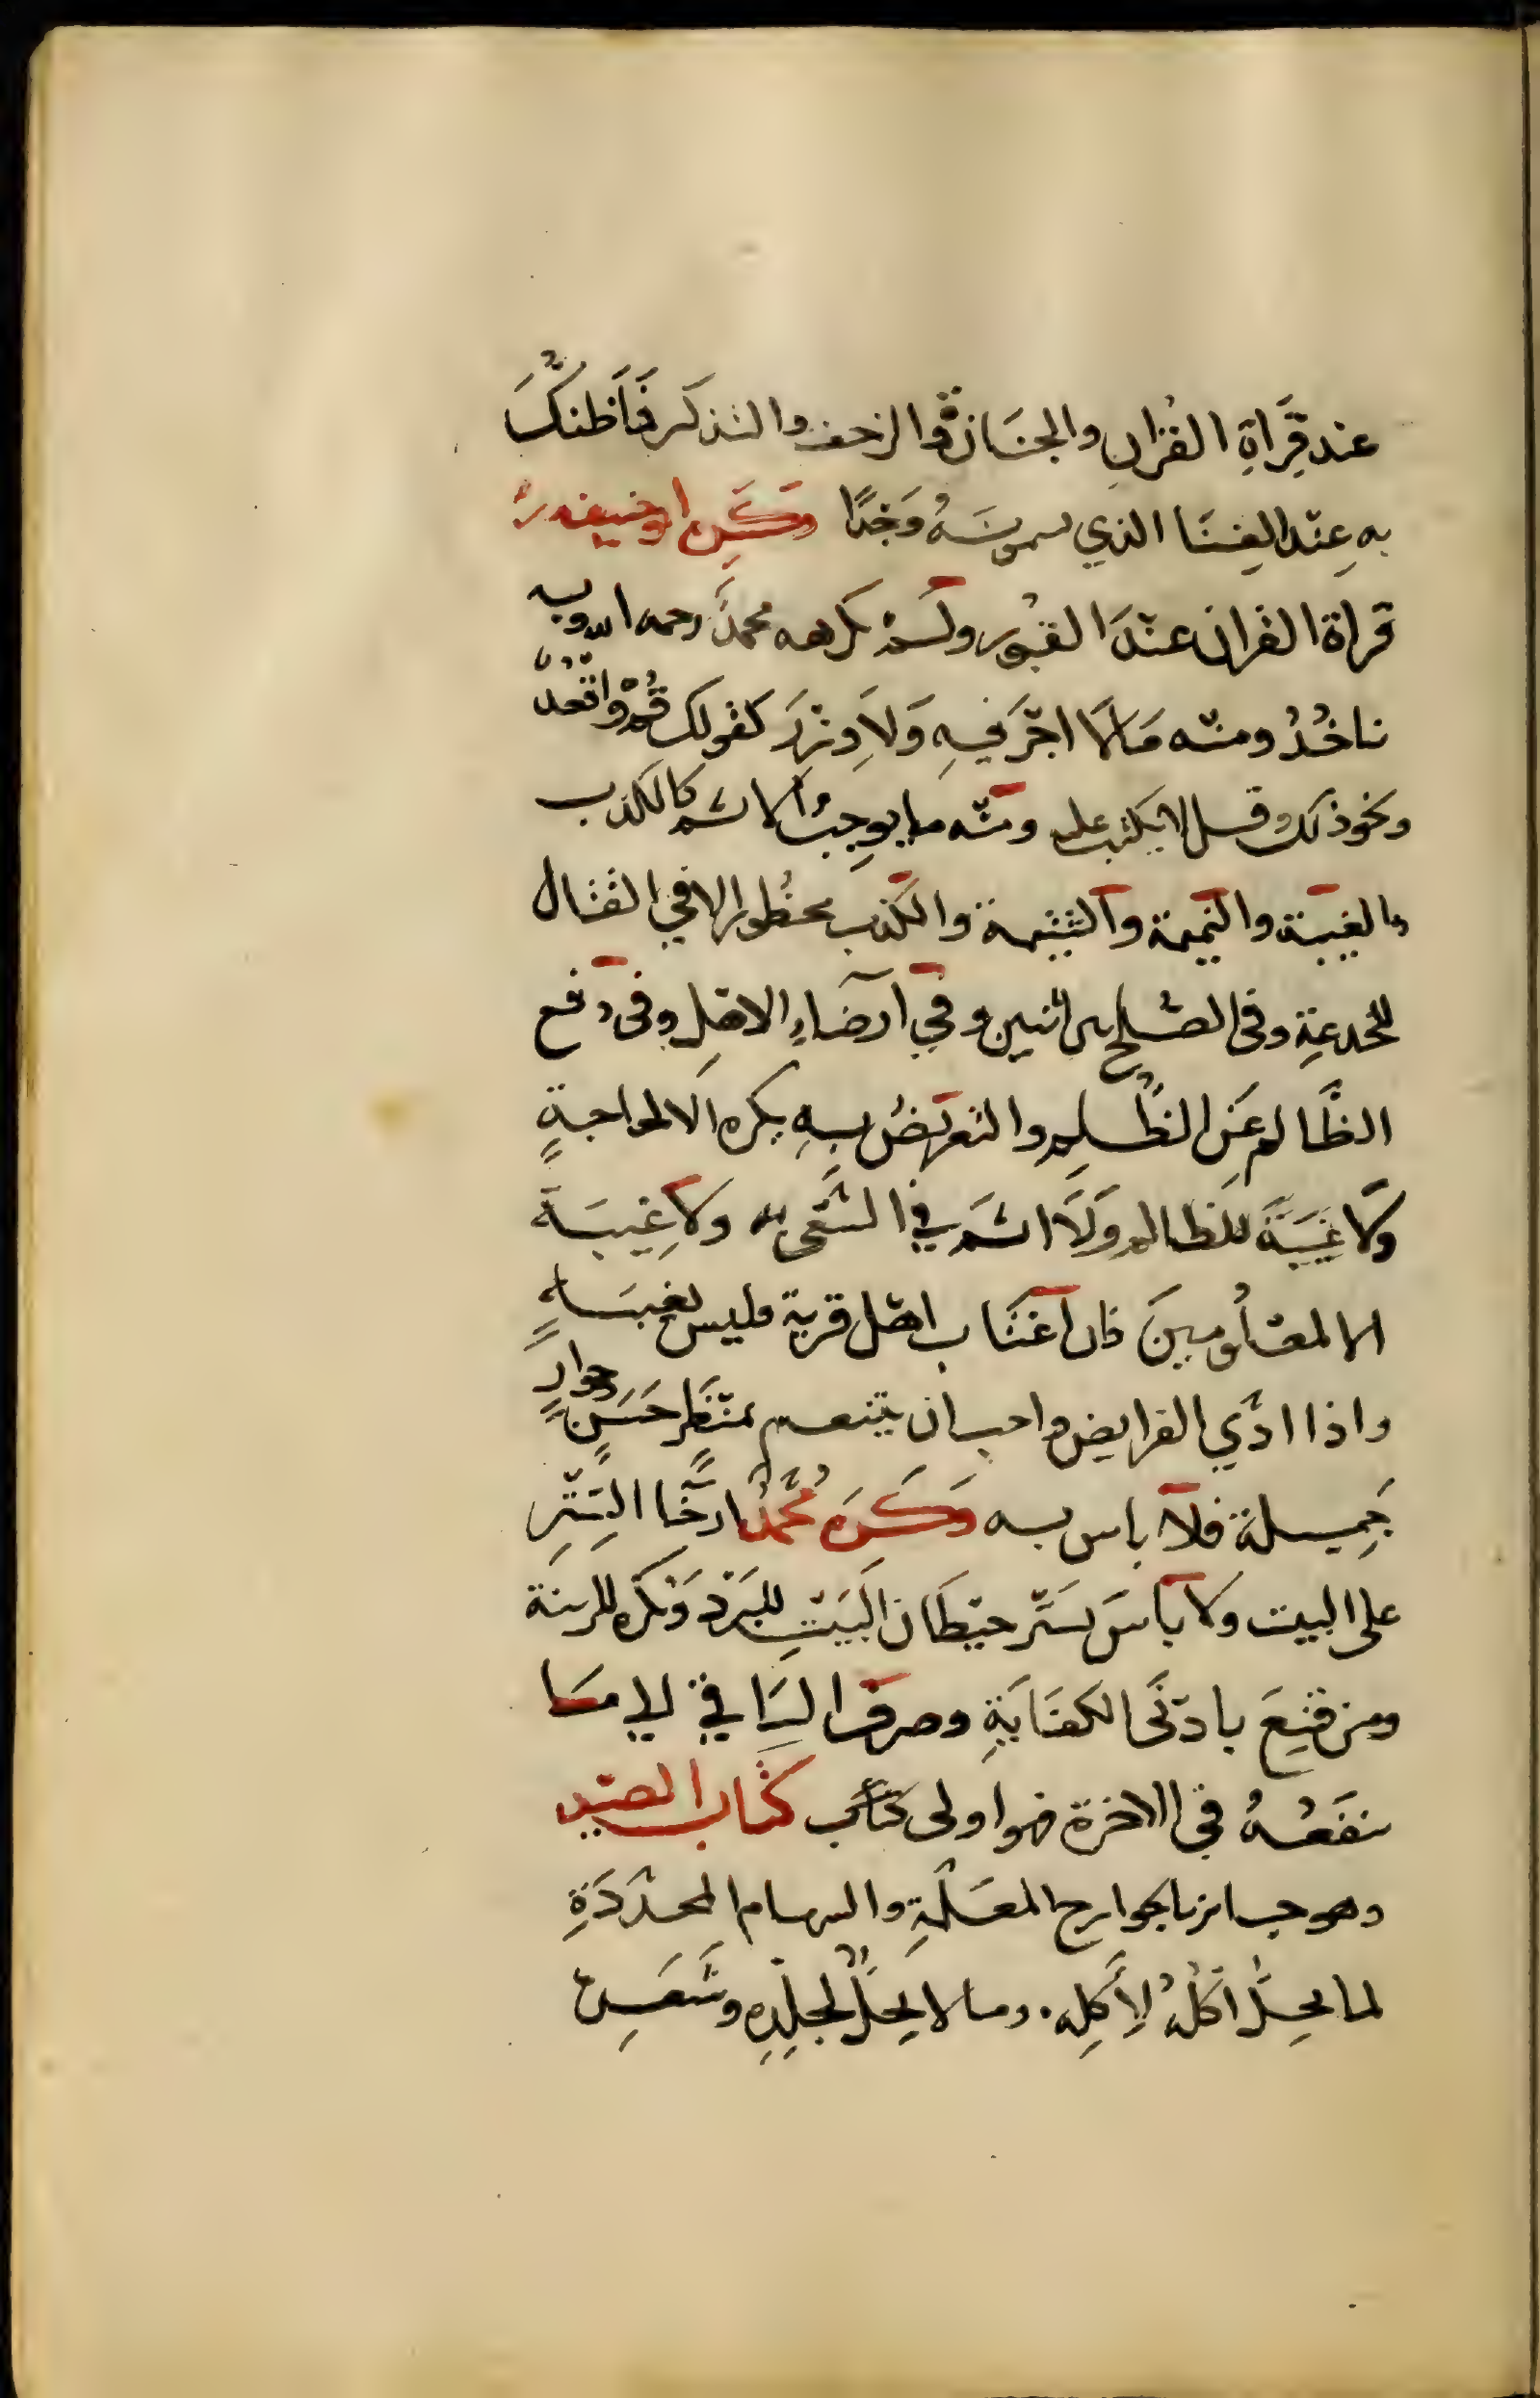 عند قِرَاةِ القُرْانِ والجنَازة والزحف والتذكر فَمَا ظنكَ
بهِ عِنْد الغِنَا الذي يسمونَهُ وَجْدًا وَكَرِهَ ابوحنيفه رح
قراة القران عندَ القبور ولم يكرهه محمدٌ رحمه الله وبه
ناخُذُ ومنه مَالا اجْرَ فيهِ وَلا وِزْرَ كقولك قُمْ واقعُدْ
ونحو ذلك وقيل لا يكتب عليه ومنه ما يوجبُ الاثم كالكذب
والغيبة والنميمة والشتيمة والكذب محظور الا في القتال
للخدعةِ وفى الصُلحِ بين اثنين وفي ارضاءِ الاهْلِ وفى دفع
الظَّالمِ عَنِ الظُلمِ والتعريضُ بهِ يكره الا لحاجةٍ
وَلا غِيبَةَ للظالم وَلا اثمَ في السَّعْى به ولا غِيبَةَ
الا لمعْلُومينَ فان اغتَابَ اهْل قرية فليس بغيبَةٍ
واذا ادّي الفرايض واحب ان يتنعم بمنْظَرٍ حَسَنٍ وجوارٍ
جَمِيلة فلا باس به وَكَرِهَ مُحمدٌ ارخَا السِتْرِ
على البيت ولا بأسَ بسَتْر حيْطَان البَيْتِ للبَرْد وَيُكْرَه للزينة
ومن قَنِعَ بادْنَى الكفَايَةِ وصرفَ البَاقي الي ما
ينفَعُهُ فى الاخرة فهو اولى كتاب كتاب الصيد
وهو جايز بالجوارح المعَلَّمةِ والسهام المحدَّدَةِ
لما يحِلُّ اكلُهُ لأَكِلِه. وما لا يَحِلُّ لجِلْدِهِ وشَعَرِهِ